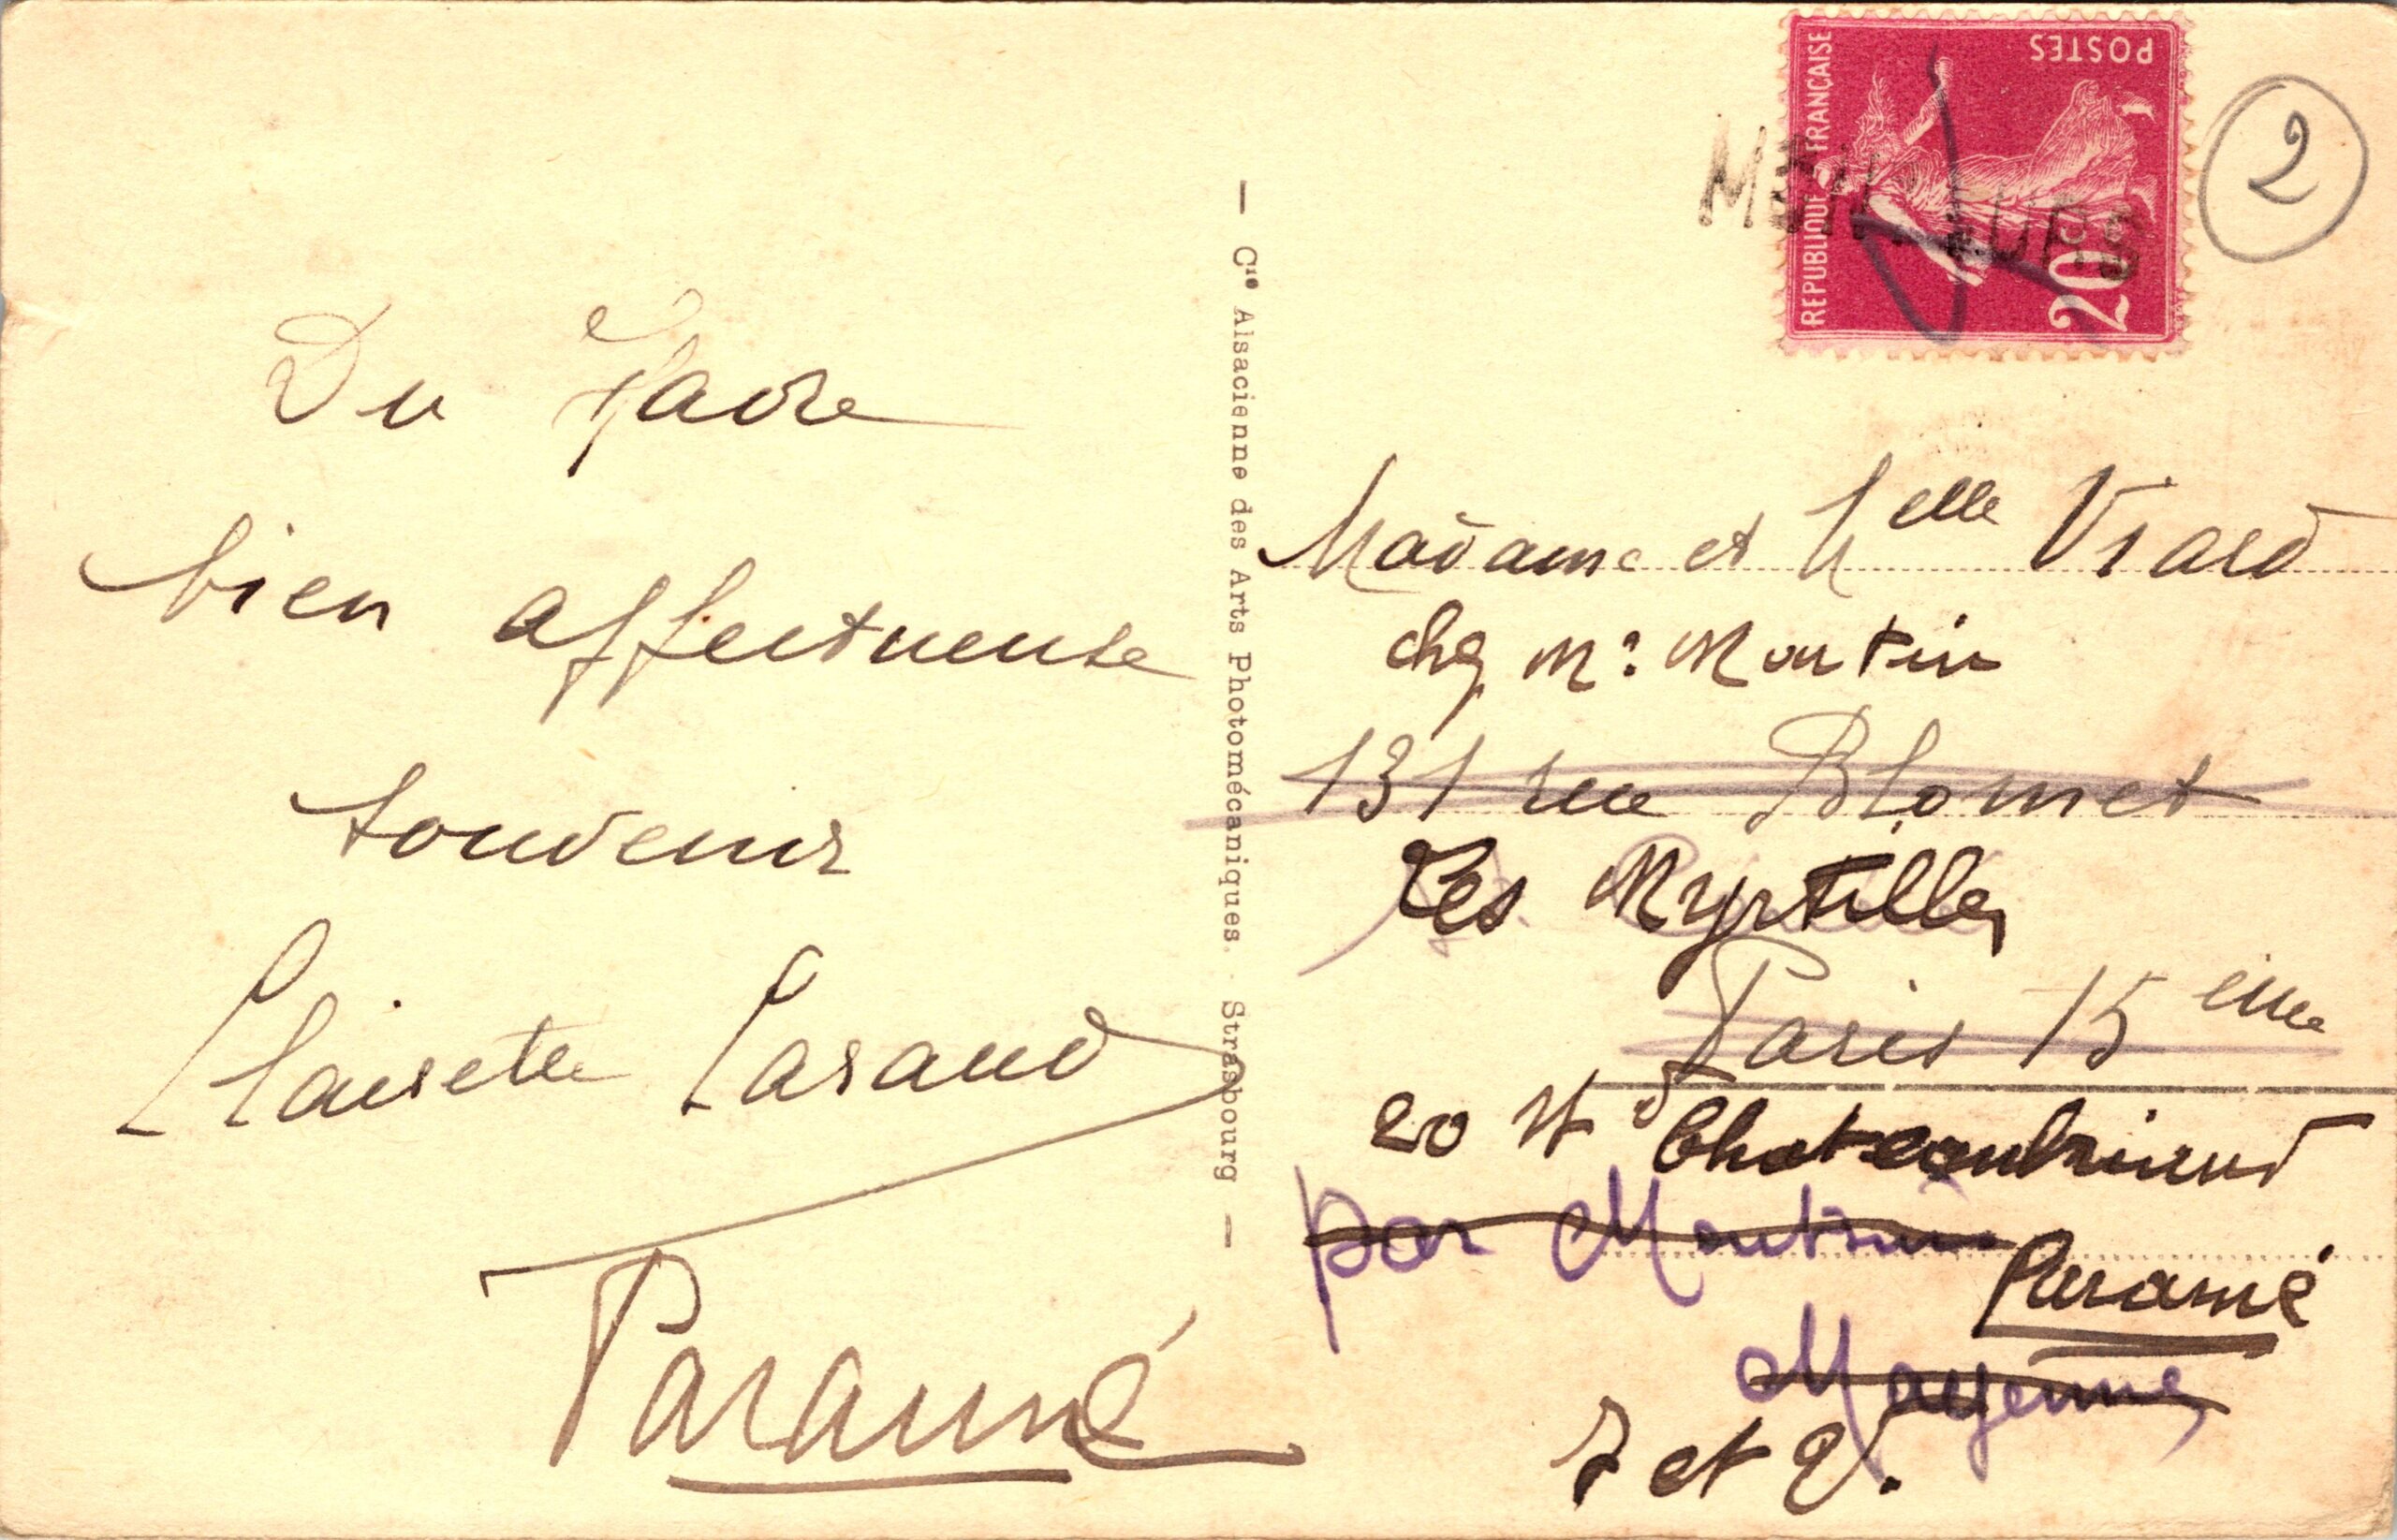 Du Havre
bien affectueuse
souvenir
Clairette Casaud
Paramé
— Cie Alsacienne des Arts Photomécaniques. - Strasbourg —
REPUBLIQUE FRANÇAISE
POSTES
20c
2
Madame et Melle Viard
chez Mr Martin
131 rue Blomet
Les Myrtilles
Paris 15 eme
20 Bd Chateaubriand
par
Paramé
Mayenne
I et V.